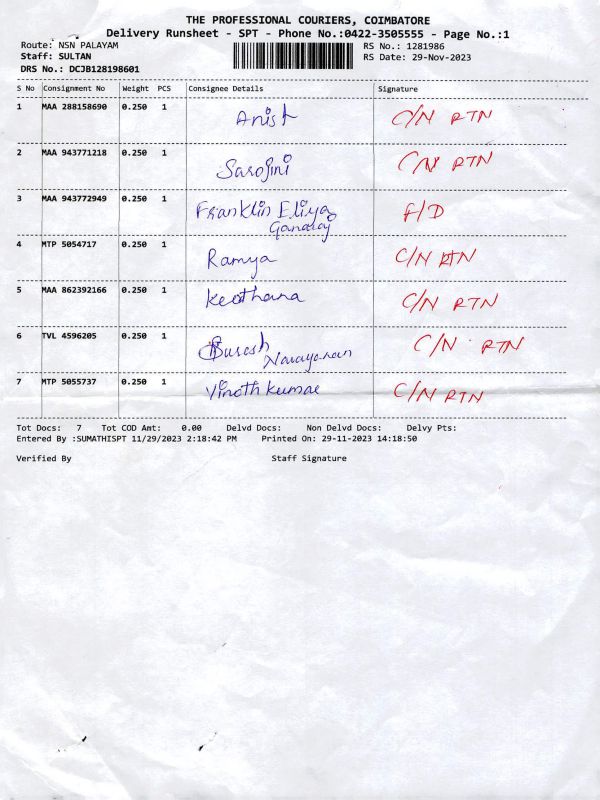 THE PROFESSIONAL COURIERS, COIMBATORE
Delivery Runsheet - SPT - Phone No.:0422-3505555 - Page No.:1
Route: NSN PALAYAM RS No.: 1281986
Staff: SULTAN RS Date: 29-Nov-2023
DRS No.: DCJB128198601
S No Consignment No Weight PCS Consignee Details Signature
1 MAA 288158690 0.250 1 Anish C/N RTN
2 MAA 943771218 0.250 1 Sarojini C/N RTN
3 MAA 943772949 0.250 1 Franklin Eliya F/D
Ganaraj
4 MTP 5054717 0.250 1 Ramya C/N RTN
5 MAA 862392166 0.250 1 Keerthana C/N RTN
6 TVL 4596205 0.250 1 Suresh C/N RTN
Narayanan
7 MTP 5055737 0.250 1 Vinoth kumar C/N RTN
Tot Docs: 7 Tot COD Amt: 0.00 Delvd Docs: Non Delvd Docs: Delvy Pts:
Entered By :SUMATHISPT 11/29/2023 2:18:42 PM Printed On: 29-11-2023 14:18:50
Verified By Staff Signature